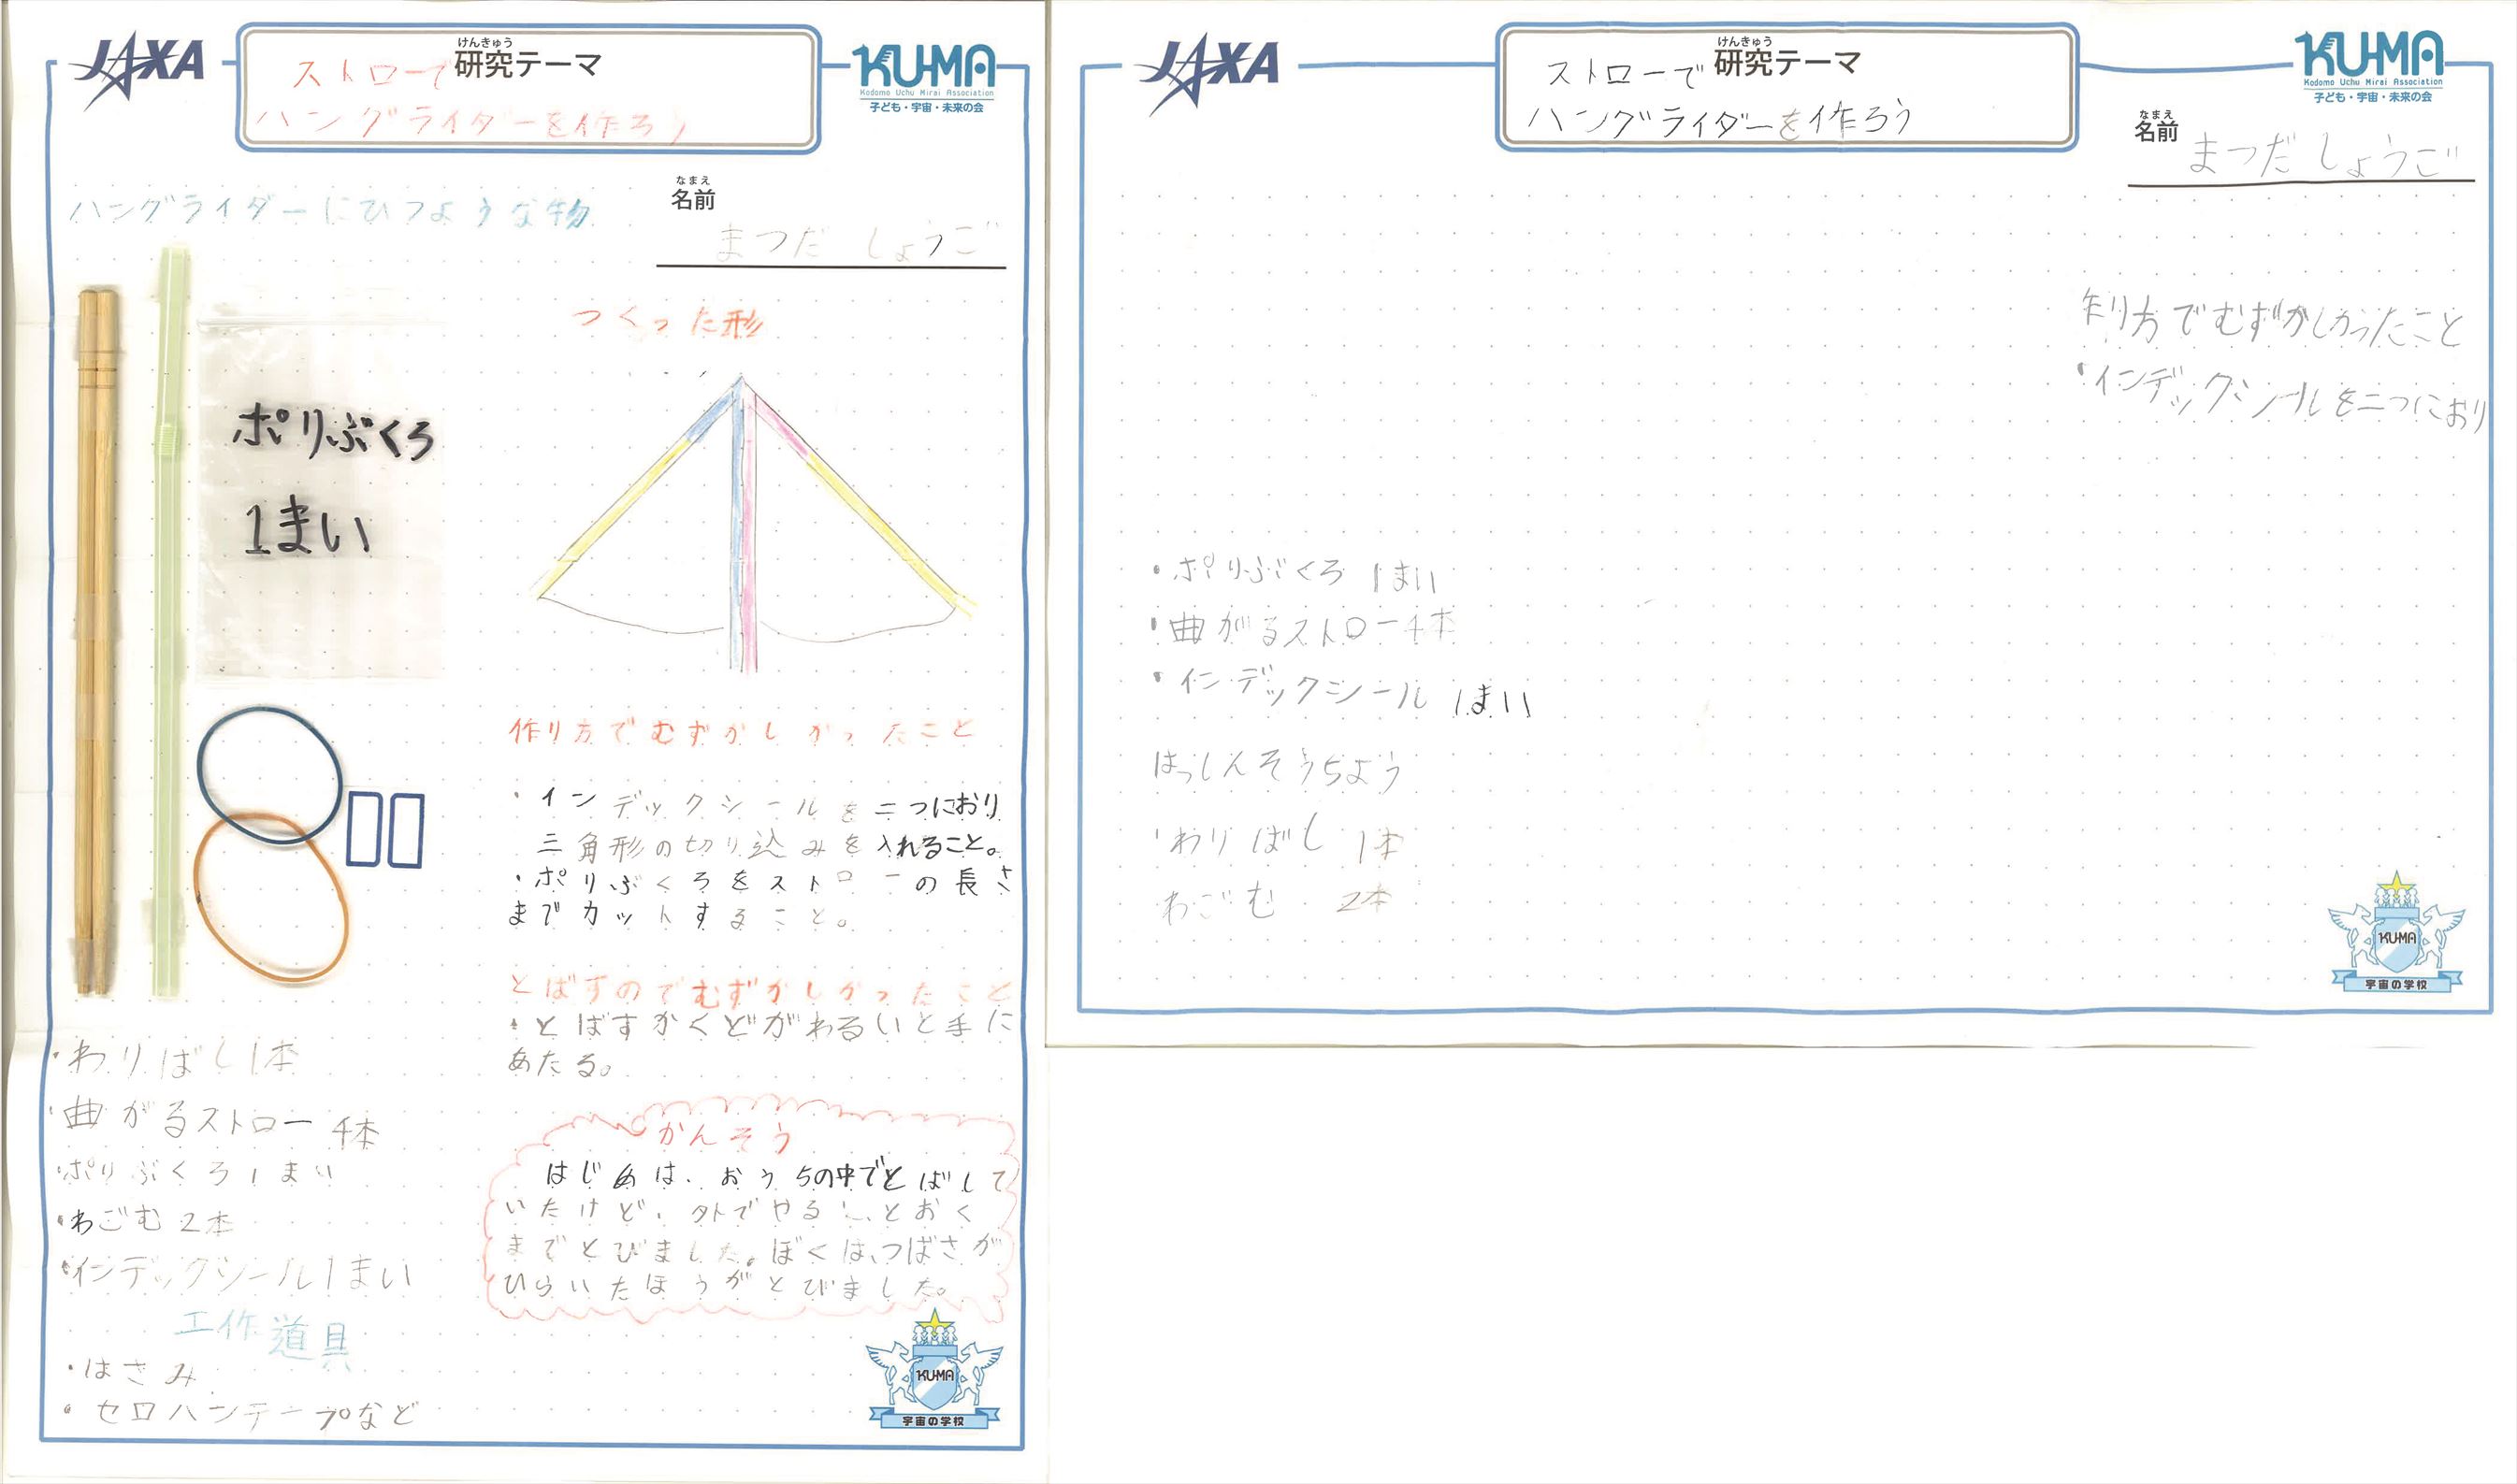 JAXA
けんきゅう
研究テーマ
ストローで
ハングライダーを作ろう
KU-MA
Kodomo Uchu Mirai Association
子ども・宇宙・未来の会
なまえ
名前
まつだ しょうご
ハングライダーにひつような物
ポリぶくろ
1まい
・わりばし1本
・曲がるストロー 4本
・ポリぶくろ1まい
・わごむ 2本
・インデックシール1まい
工作道具
・はさみ
・セロハンテープなど
つくった形
作り方でむずかしかったこと
・インデックシールを二つにおり
三角形の切り込みを入れること。
・ポリぶくろをストローの長さ
までカットすること。
とばすのでむずかしかったこと
・とばすかくどがわるいと手に
あたる。
かんそう
はじめは、おうちの中でとばして
いたけど、外でやるととおく
までとびました。ぼくは、つばさが
ひらいたほうがとびました。
KUMA
宇宙の学校
JAXA
けんきゅう
研究テーマ
ストローで
ハングライダーを作ろう
KU-MA
Kodomo Uchu Mirai Association
子ども・宇宙・未来の会
なまえ
名前
まつだ しょうご
作り方でむずかしかったこと
・インデックシールを二つにおり
・ポリぶくろ 1まい
・曲がるストロー4本
・インデックシール 1まい
はっしんそうちよう
・わりばし 1本
わごむ 2本
KUMA
宇宙の学校